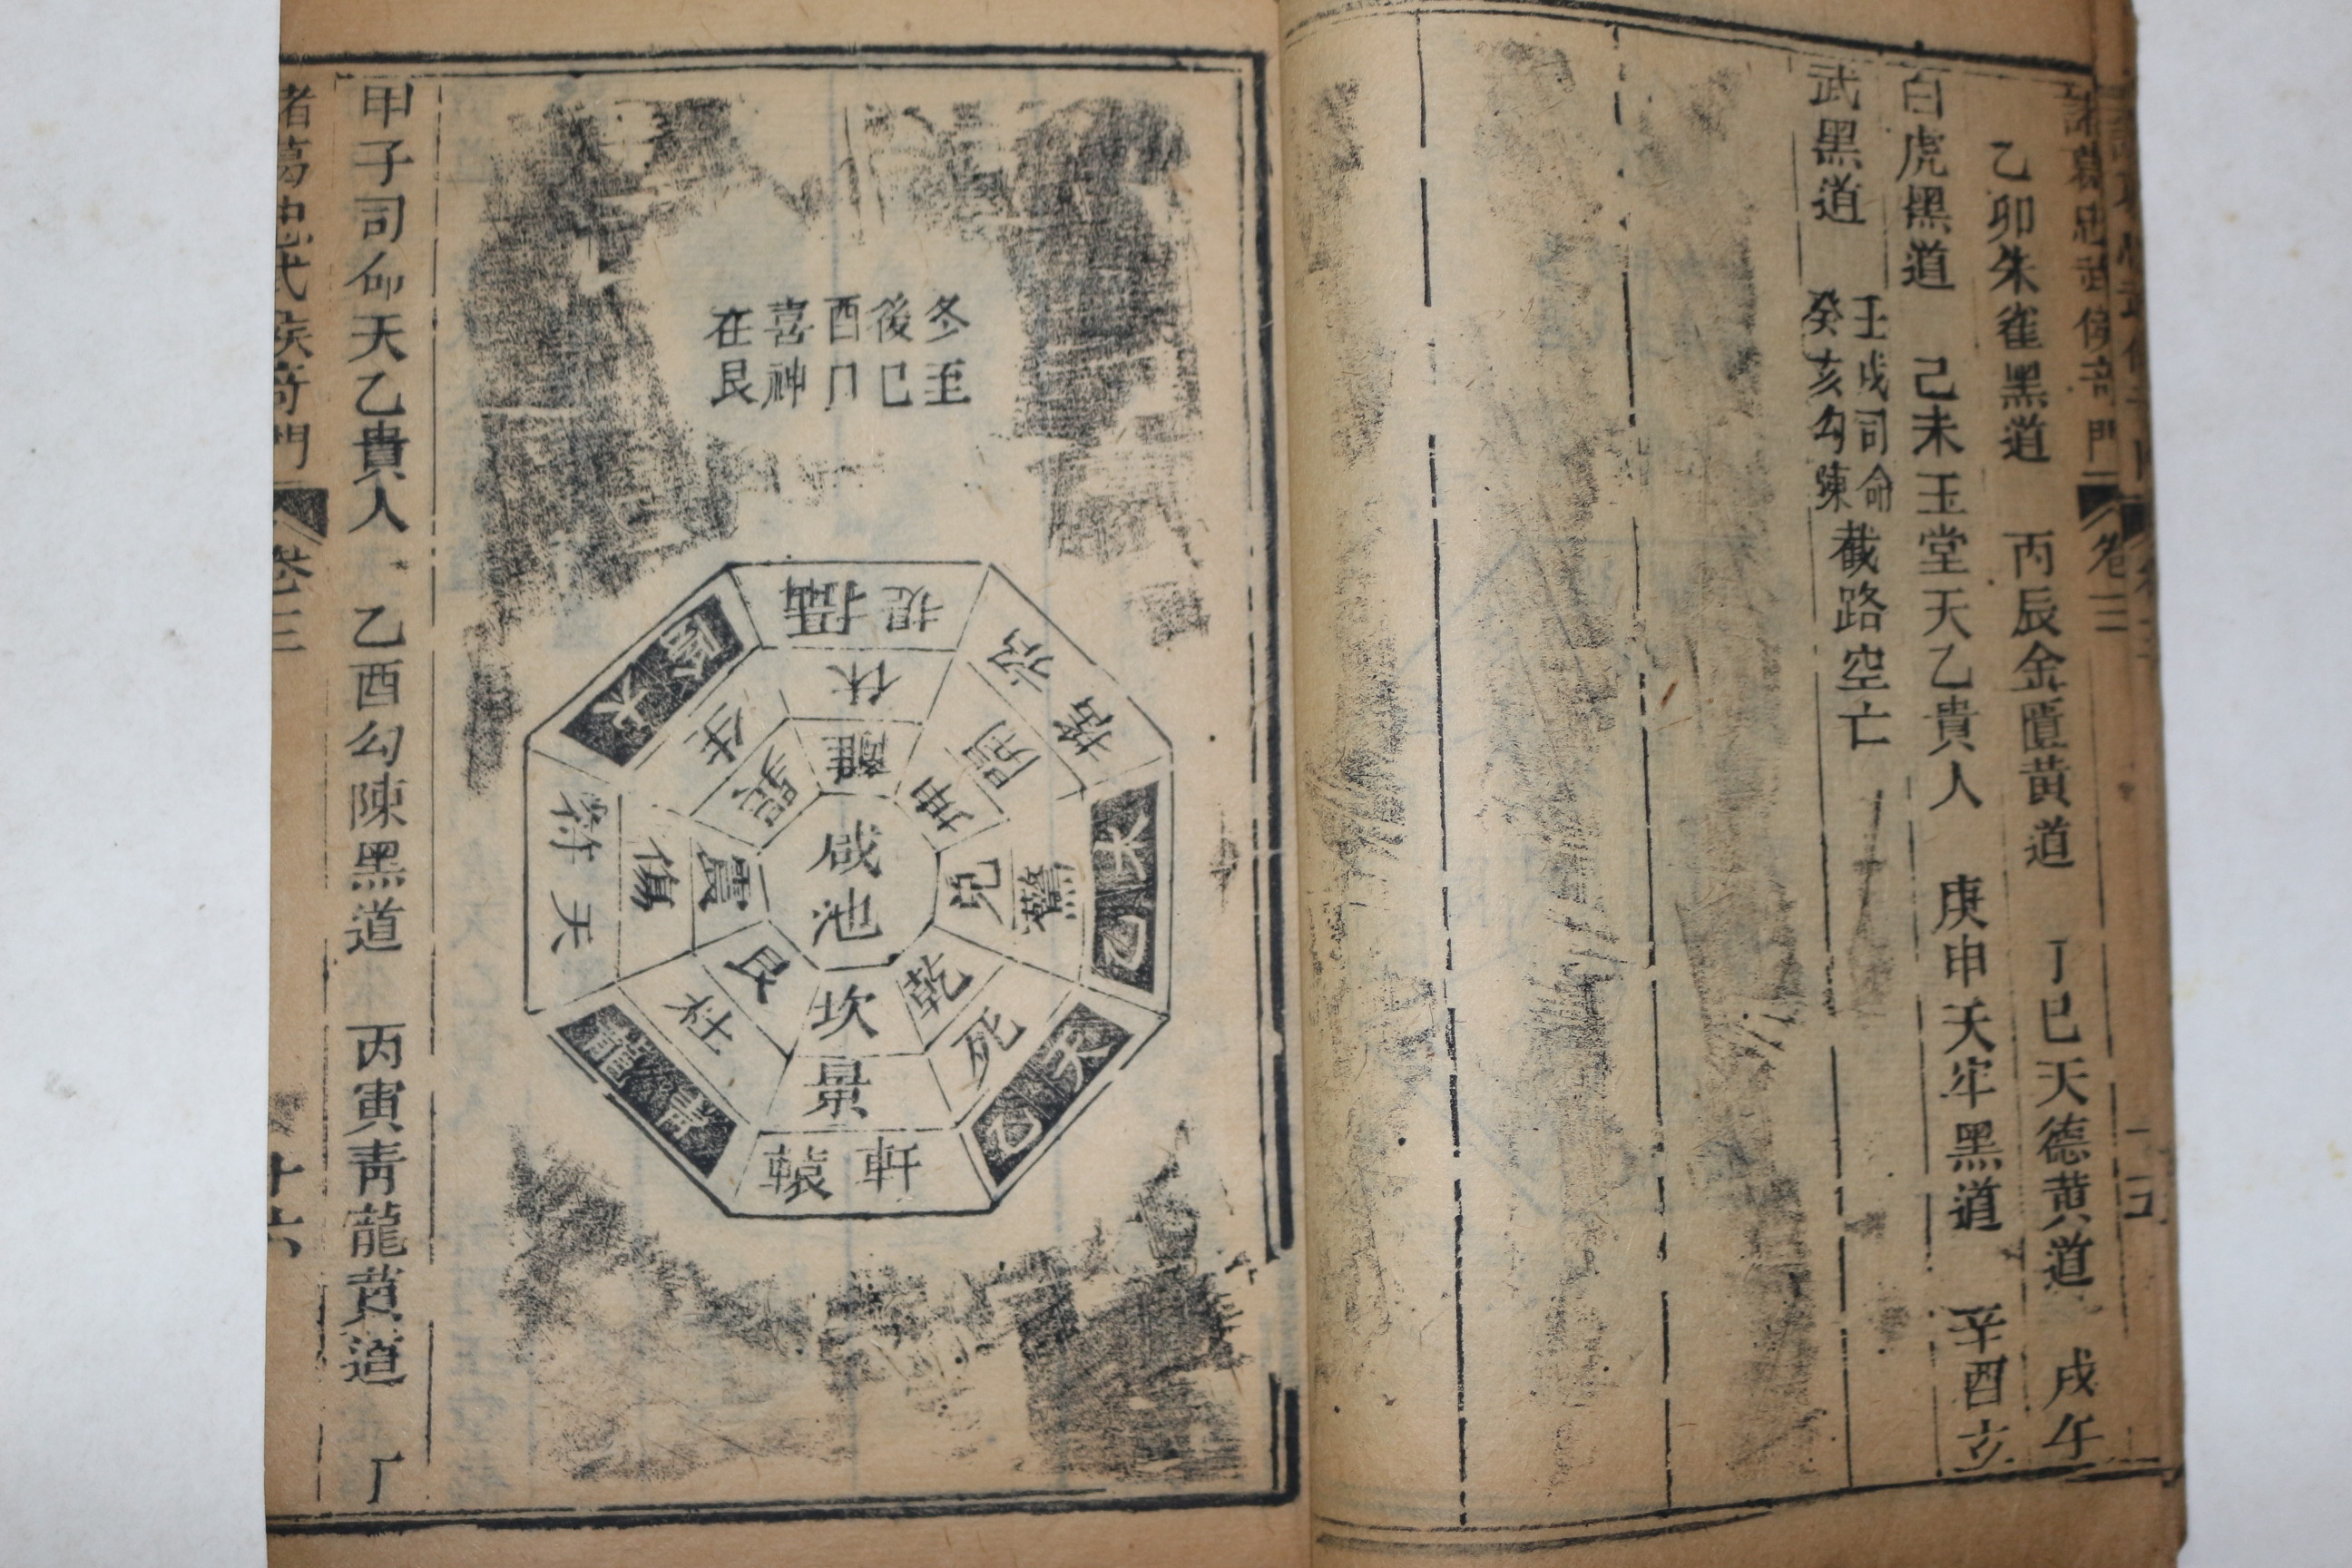 諸葛忠武侯奇門 卷三 十五
乙卯朱雀黑道 丙辰金匱黃道 丁巳天德黃道 戊午
白虎黑道 己未玉堂天乙貴人 庚申天牢黑道 辛酉玄
武黑道 壬戌司命 癸亥勾陳 截路空亡
冬至
後己
酉日
喜神
在艮
攝提
招搖
太乙
天乙
軒轅
青龍
天符
太陰
休
開
驚
死
景
杜
傷
生
離
坤
兌
乾
坎
艮
震
巽
咸池
甲子司命天乙貴人 乙酉勾陳黑道 丙寅青龍黃道 丁
諸葛忠武侯奇門 卷三 十六